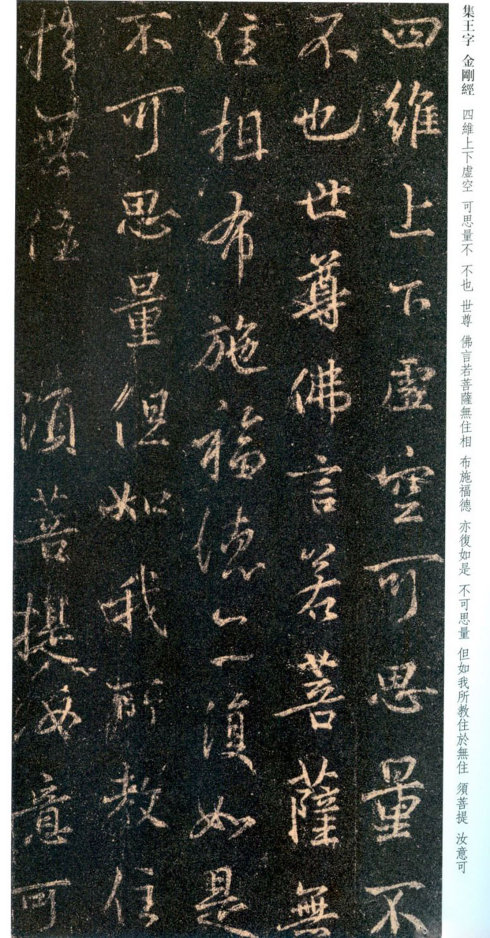 集王字 金剛經 四維上下虛空 可思量不 不也 世尊 佛言若菩薩無住相 布施福德 亦復如是 不可思量 但如我所教住於無住 須菩提 汝意可
四維上下虛空可思量不
不也世尊佛言若菩薩無
住相布施福德亦復如是
不可思量但如我所教住
於無住 須菩提汝意可